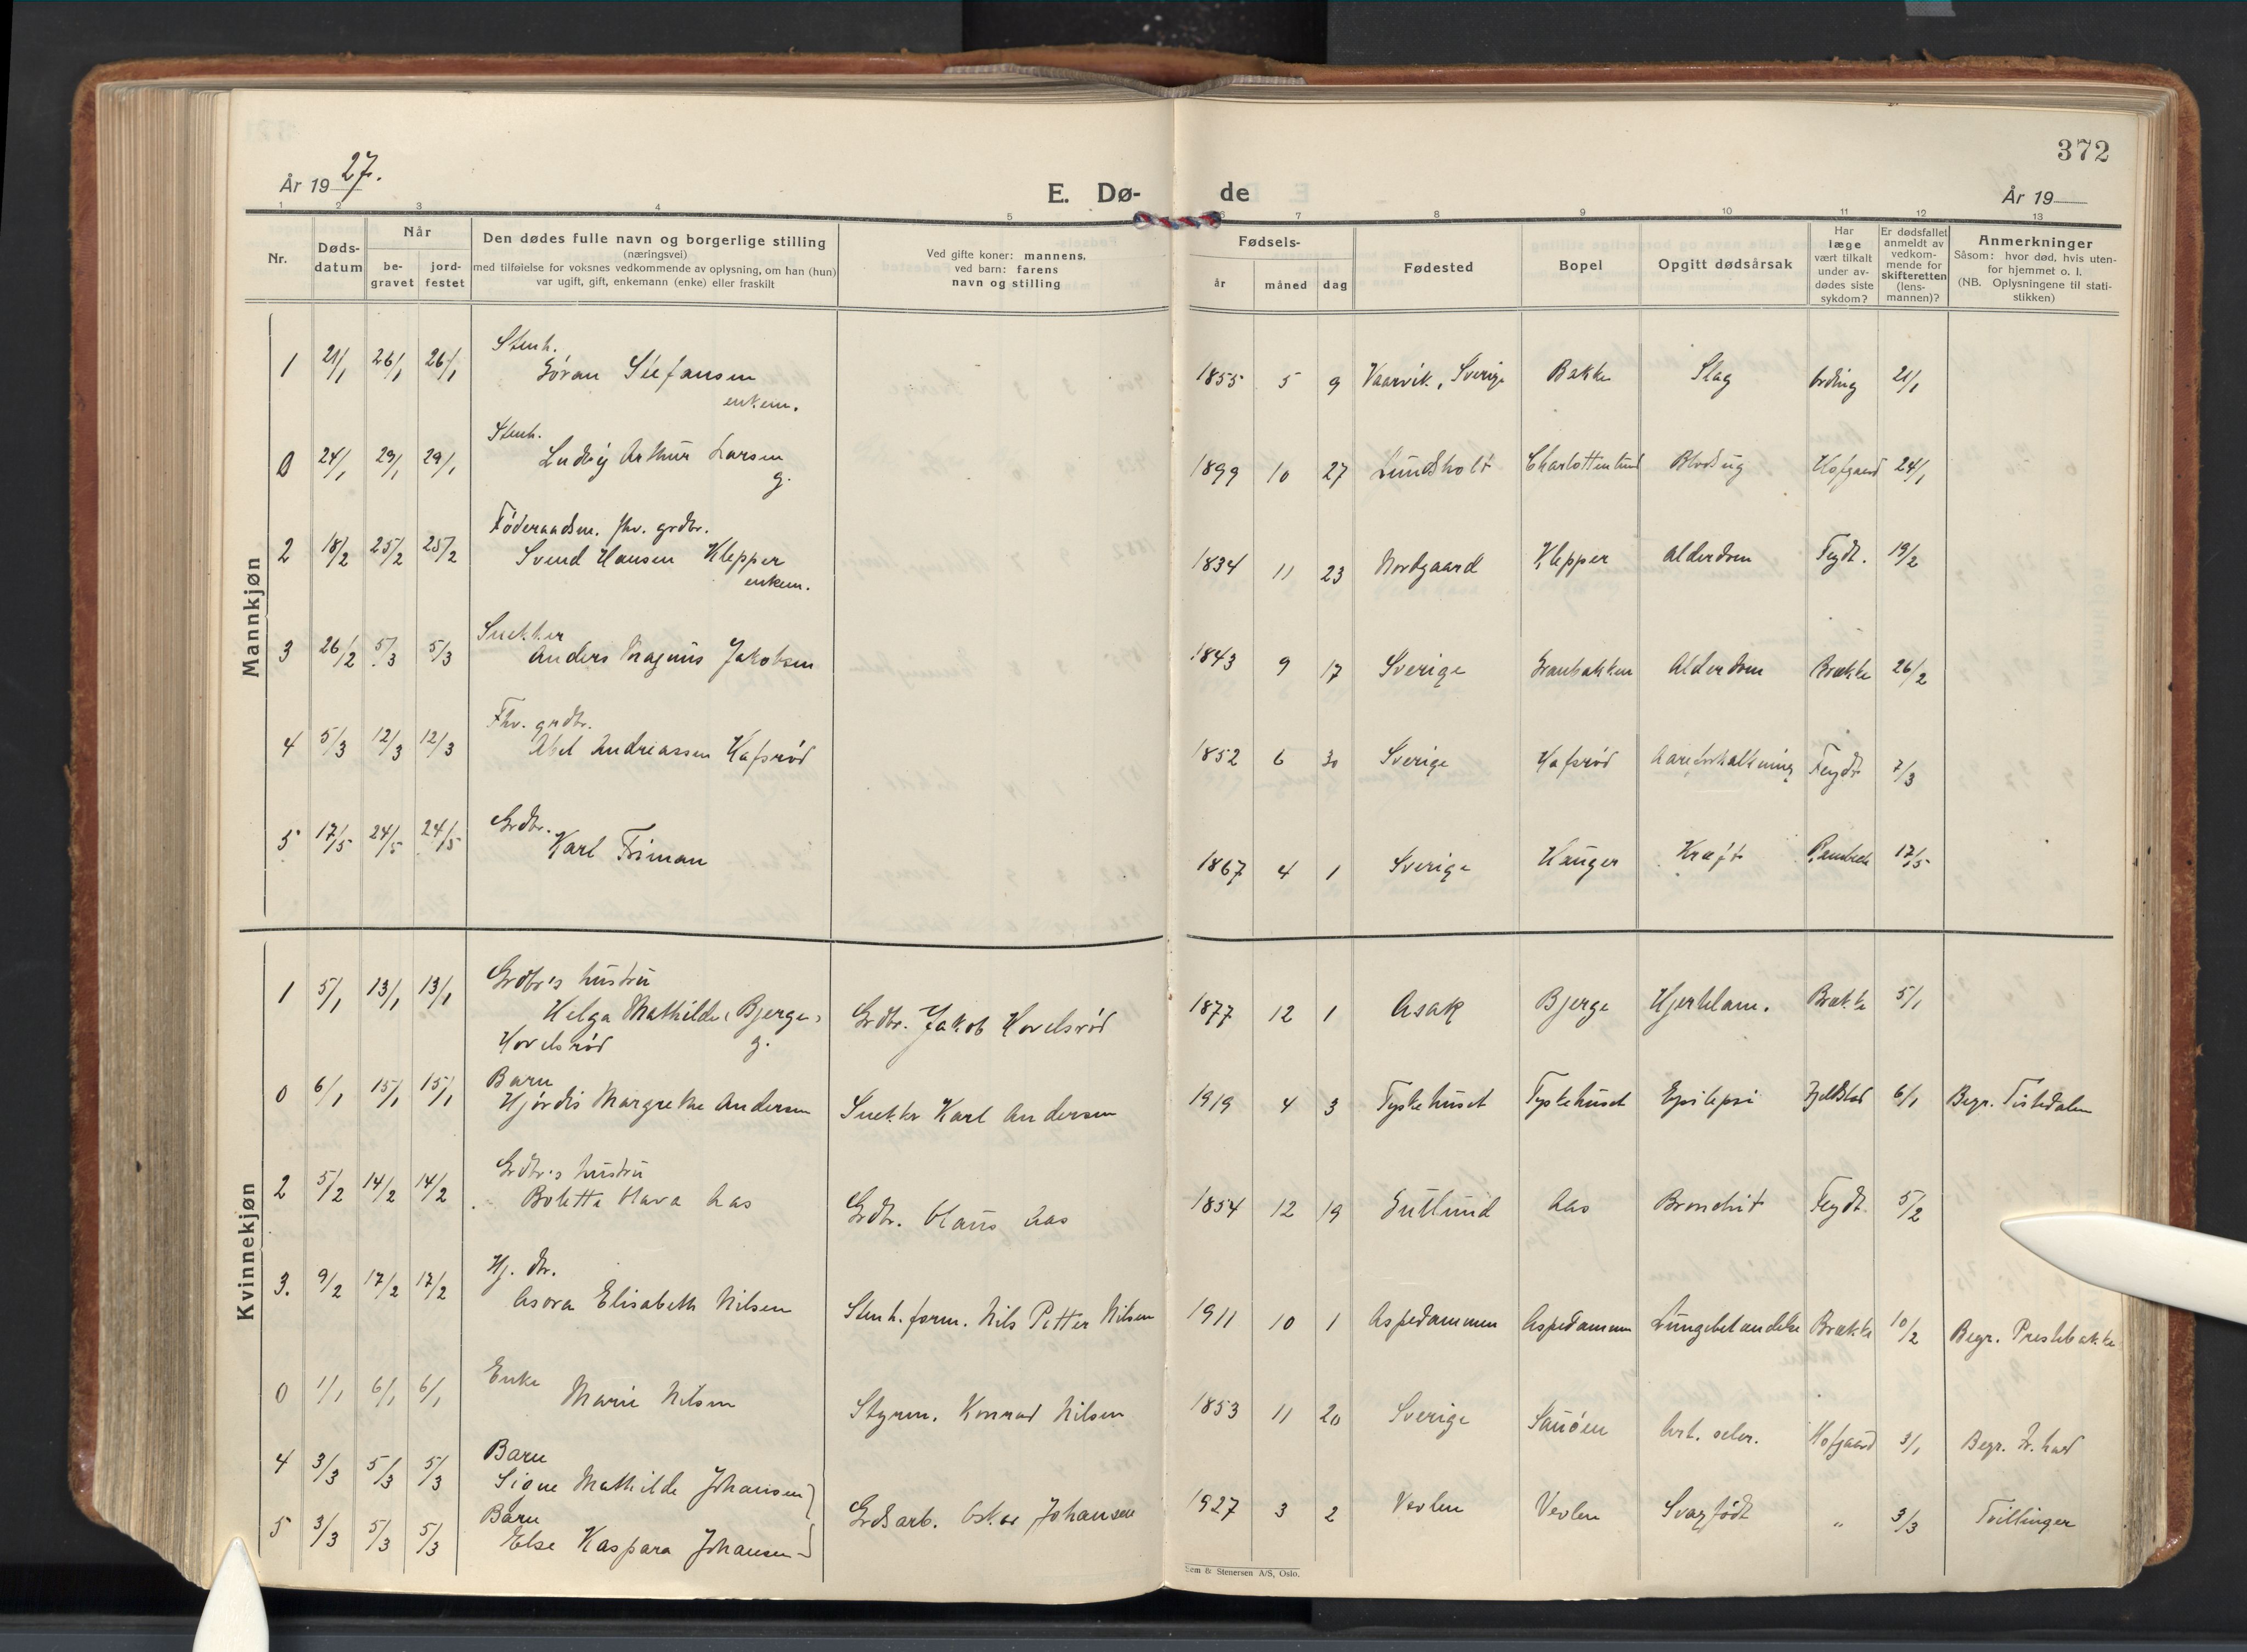 372
År 19 27.
E. Dø- de
År 19
1 2 3 4 5 6 7 8 9 10 11 12 13
Nr.
Døds-
datum
Når
be-
gravet
jord-
festet
Den dødes fulle navn og borgerlige stilling
(næringsvei)
med tilføielse for voksnes vedkommende av oplysning, om han (hun)
var ugift, gift, enkemann (enke) eller fraskilt
Ved gifte koner: mannens,
ved barn: farens
navn og stilling
Fødsels-
år måned dag
Fødested
Bopel
Opgitt dødsårsak
Har
læge
vært tilkalt
under av-
dødes siste
sykdom?
Er dødsfallet
anmeldt av
vedkom-
mende for
skifteretten
(lens-
mannen)?
Anmerkninger
Såsom: hvor død, hvis uten-
for hjemmet o. l.
(NB. Oplysningene til stati-
stikken)
Mannkjøn
Stenh.
1 21/1 26/1 26/1 Göran Stefansen 1855 5 9 Vaarvik, Sverige Bakke Slag Ording 21/1
enkem.
Stenh.
0 24/1 29/1 29/1 Ludvig Arthur Larsen 1899 10 27 Lundsholt Charlottenlund Hofgaard 24/1
g.
Föderaadsm. fhv. grdbr.
2 18/2 25/2 25/2 Svend Hansen Klepper 1834 11 23 Nordgaard Klepper Alderdom Feydt. 19/2
enkem.
Snekker
3 26/2 5/3 5/3 Anders Magnus Jakobsen 1843 9 17 Sverige Granbakken Alderdom Brække 26/2
Fhv. grdbr.
4 5/3 12/3 12/3 Abel Andreassen Hafsröd 1852 6 30 Sverige Hafsröd Aareforkalkning Feydt 7/3
Grdbr.
5 17/5 24/5 24/5 Karl Friman 1867 4 1 Sverige Hauger Kræft 17/5
Kvinnekjøn
Grdbr's hustru
1 5/1 13/1 13/1 Helga Mathilde (Bjerge) Grdbr. Jakob Hovelsröd 1877 12 1 Asak Bjerge Hjertelam. Brække 5/1
Hovelsröd g.
Barn
0 6/1 15/1 15/1 Hjördis Margrethe Andersen Snekker Karl Andersen 1919 4 3 Tyskehuset Tyskehuset Epilepsi Fjeldstad 6/1 Begr. Tistedalen
Grdbr's hustru
2 5/2 14/2 14/2 Bolette Olava Aas Grdbr. Olaus Aas 1854 12 19 Gutlund Aas Bronchit Feydt. 5/2
Hj. dtr.
3. 9/2 17/2 17/2 Asora Elisabeth Nilsen Stenh. form. Nils Petter Nilsen 1911 10 1 Aspedammen Aspedammen Lungebetændelse Brække 10/2 Begr. Prestebakke
Enke
0 1/1 6/1 6/1 Marie Nilsen Styrm. Konrad Nilsen 1853 11 20 Sverige Sauöen Art. scler. Hofgaard 3/1 Begr. Fr. hald
Barn
4 3/3 5/3 5/3 Signe Mathilde Johansen
Grdsarb. Oskar Johansen 1927 3 2 Vevlen Vevlen Svagfödt " 3/3 Tvillinger
Barn
5 3/3 5/3 5/3 Else Kaspara Johansen
Sem & Stenersen A/S, Oslo.